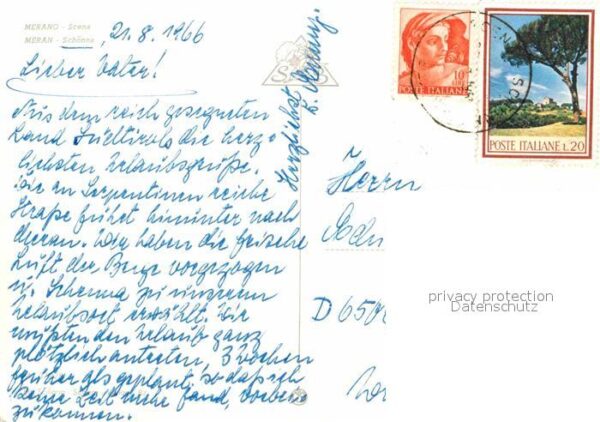 MERANO - Scena
MERAN - Schönna
21.8.1966
Lieber Vater!
Aus dem reich gesegneten
Land Südtirols die herz-
lichsten Urlaubsgrüße.
Die an Serpentinen reiche
Straße führt hinunter nach
Meran. Wir haben die frische
Luft der Berge vorgezogen
u. Schenna zu unserem
Urlaubsort erwählt. Wir
mußten den Urlaub ganz
plötzlich antreten, 3 Wochen
früher als geplant, so daß ich
keine Zeit mehr fand, vorbei
zukommen.
Herzlichst
POSTE ITALIANE
10
LIRE
POSTE ITALIANE L.20
Herrn
D 650
privacy protection
Datenschutz